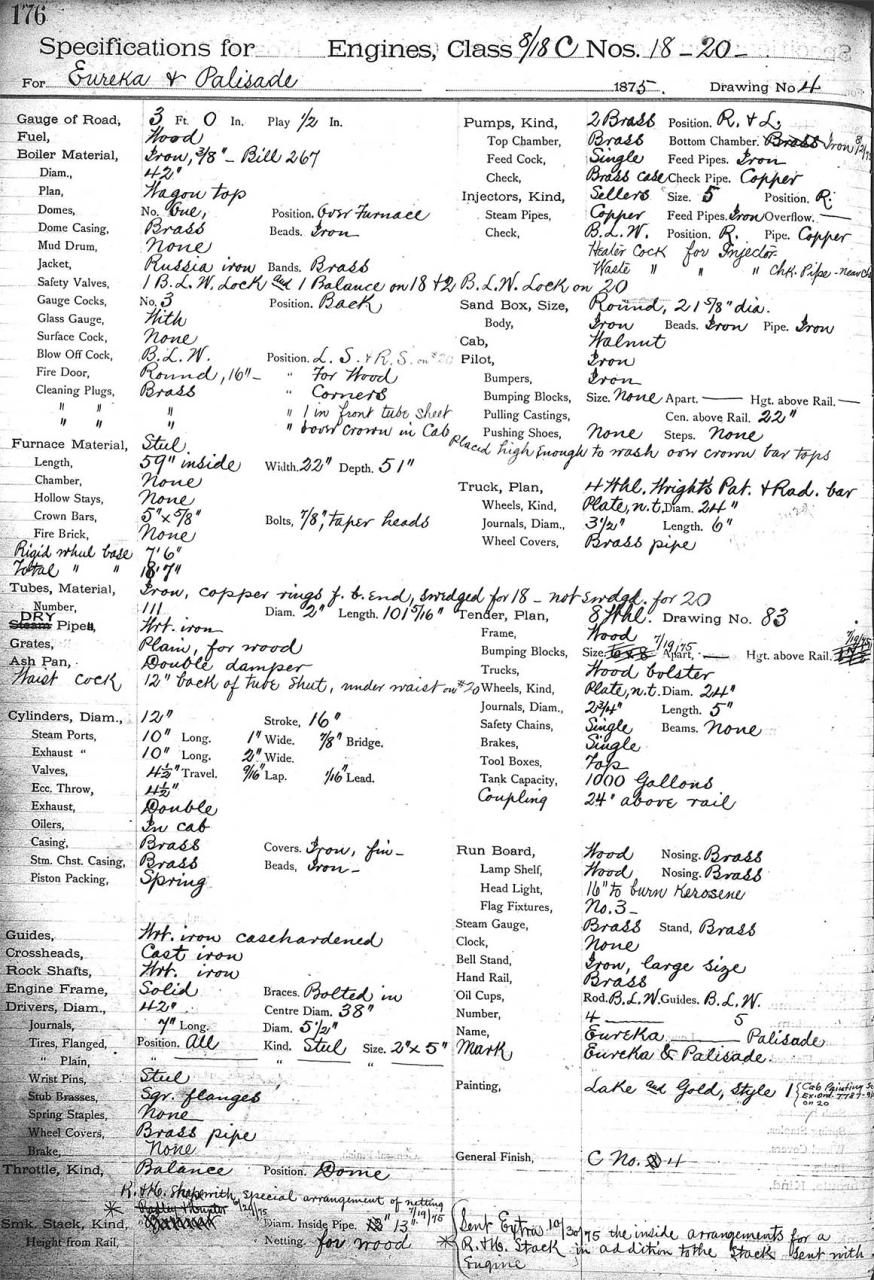 176
Specifications for Engines, Class 8/18 C Nos. 18 - 20 -
For Eureka & Palisade 1875. Drawing No. 4
Gauge of Road, 3 Ft. 0 In. Play 1/2 In.
Fuel, Wood
Boiler Material, Iron, 3/8" - Bill 267
Diam., 42"
Plan, Wagon top
Domes, No. One, Position. Over Furnace
Dome Casing, Brass Beads. Iron
Mud Drum, None
Jacket, Russia iron Bands. Brass
Safety Valves, 1 B.L.W. Lock and 1 Balance on 18 & 2 B.L.W. Lock on 20
Gauge Cocks, No. 3 Position. Back
Glass Gauge, With
Surface Cock, None
Blow Off Cock, B.L.W. Position. L.S. & R.S. on #20
Fire Door, Round, 16" - " For Wood
Cleaning Plugs, Brass " Corners
" " " " 1 in front tube sheet
" " " " over crown in Cab
Placed high enough to wash over crown bar tops
Furnace Material, Steel
Length, 59" inside Width. 22" Depth. 51"
Chamber, None
Hollow Stays, None
Crown Bars, 5" x 5/8" Bolts, 7/8", taper heads
Fire Brick, None
Rigid wheel base 7' 6"
Total " " 18' 7"
Tubes, Material, Iron, copper rings f.b. end, swedged for 18 - not swdgd. for 20
Number, 111 Diam. 2" Length. 101 5/16"
DRY
Steam Pipes, Wrt. iron
Grates, Plain, for wood
Ash Pan, Double damper
Waist cock 12" back of tube sheet, under waist on #20
Cylinders, Diam., 12" Stroke, 16"
Steam Ports, 10" Long. 1" Wide. 7/8" Bridge.
Exhaust " 10" Long. 2" Wide.
Valves, 4 1/2" Travel. 9/16" Lap. 1/16" Lead.
Ecc. Throw, 4 1/2"
Exhaust, Double
Oilers, In cab
Casing, Brass Covers. Iron, fin -
Stm. Chst. Casing, Brass Beads, Iron -
Piston Packing, Spring
Guides, Wrt. iron casehardened
Crossheads, Cast iron
Rock Shafts, Wrt. iron
Engine Frame, Solid Braces. Bolted in
Drivers, Diam., 42" Centre Diam. 38"
Journals, 7" Long. Diam. 5 1/2"
Tires, Flanged, Position. All Kind. Steel Size. 2" x 5"
" Plain, " "
Wrist Pins, Steel
Stub Brasses, Sqr. flanges
Spring Staples, None
Wheel Covers, Brass pipe
Brake, None
Throttle, Kind, Balance Position. Dome
R.&H. Shape with special arrangement of netting
* Radley & Hunter 6/29/75 7/19/75
Smk. Stack, Kind, Diam. Inside Pipe. 13"
Height from Rail, Netting. for wood
Pumps, Kind, 2 Brass Position. R. & L.
Top Chamber, Brass Bottom Chamber. Brass Iron
Feed Cock, Single Feed Pipes. Iron
Check, Brass case Check Pipe. Copper
Injectors, Kind, Sellers Size. 5 Position. R.
Steam Pipes, Copper Feed Pipes. Iron Overflow. —
Check, B.L.W. Position. R. Pipe. Copper
Heater Cock for Injector
Waste " " " Chk. Pipe -
Sand Box, Size, Round, 21 5/8" dia.
Body, Iron Beads. Iron Pipe. Iron
Cab, Walnut
Pilot, Iron
Bumpers, Iron
Bumping Blocks, Size. None Apart. — Hgt. above Rail. —
Pulling Castings, Cen. above Rail. 22"
Pushing Shoes, None Steps. None
Truck, Plan, 4 Whl. Wright's Pat. & Rad. bar
Wheels, Kind, Plate, n.t. Diam. 24"
Journals, Diam., 3 1/2" Length. 6"
Wheel Covers, Brass pipe
Tender, Plan, 8 Whl. Drawing No. 83
Frame, Wood
Bumping Blocks, Size. 6 x 8 7/19/75 Apart. — Hgt. above Rail. 7/19/75
Trucks, Wood bolster
Wheels, Kind, Plate, n.t. Diam. 24"
Journals, Diam., 2 3/4" Length. 5"
Safety Chains, Single Beams. None
Brakes, Single
Tool Boxes, Top
Tank Capacity, 1000 Gallons
Coupling 24" above rail
Run Board, Wood Nosing. Brass
Lamp Shelf, Wood Nosing. Brass
Head Light, 16" to burn Kerosene
Flag Fixtures, No. 3 -
Steam Gauge, Brass Stand, Brass
Clock, None
Bell Stand, Iron, large size
Hand Rail, Brass
Oil Cups, Rod. B.L.W. Guides. B.L.W.
Number, 4 — 5
Name, Eureka — Palisade
Mark Eureka & Palisade.
Painting, Lake and Gold, Style 1 { Cab Painting
Ex. Ord. 7787
on 20
General Finish, C No. 4
* { Sent Extra 10/30/75 the inside arrangements for a
R.&H. Stack in addition to the Stack sent with
Engine